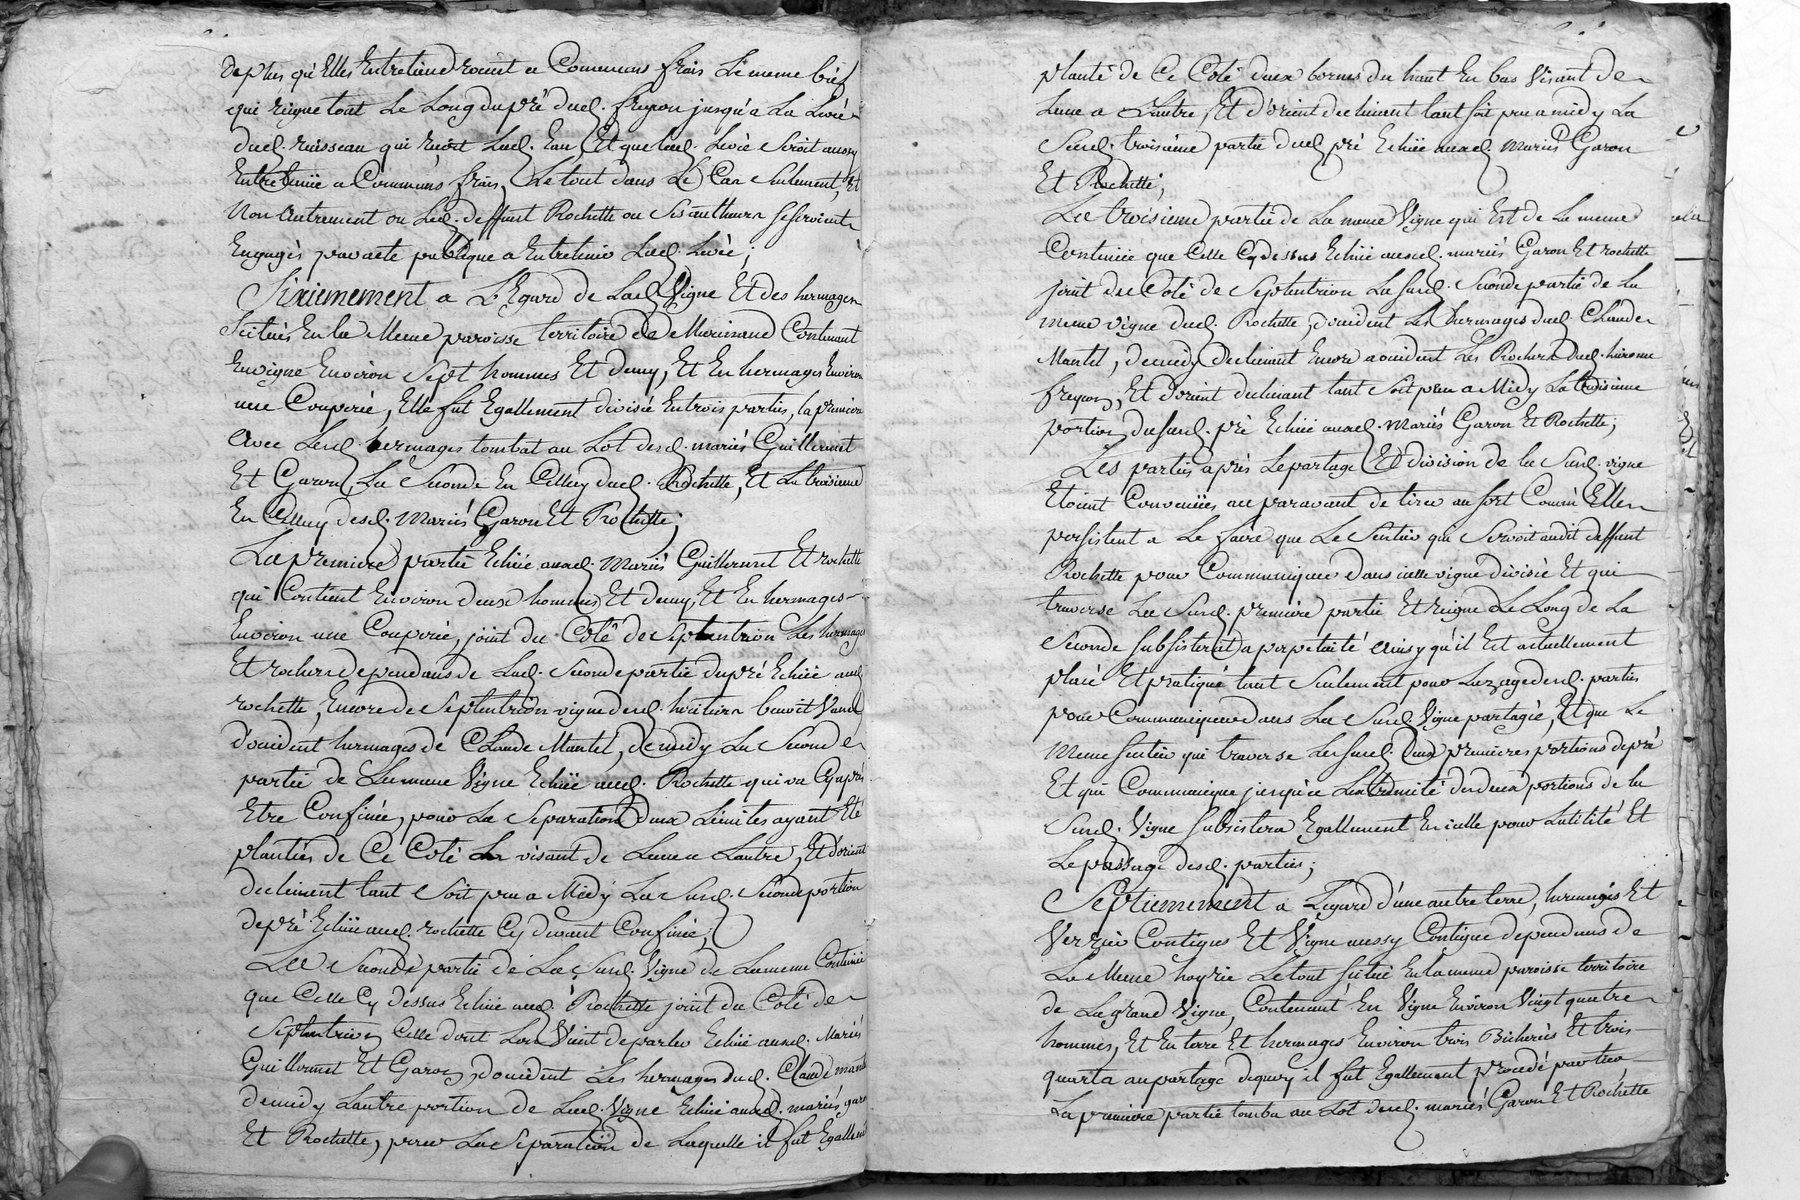 de plus qu'Elles Entretiendroient a Communs frais Le meme bief
qui reigne tout Le Long du pré dud. freyron jusqu'a La Levée
dud. ruisseau qui reçoit Lad. Eau Et que lad. Levée Seroit aussy
Entretenüe a Communs frais, Le tout dans Le Cas Seulement, Et
Non Autrement ou Led. deffunt Rochette ou Ses autheurs Se seroient
Engagés par acte publique a Entretenir Lad. Levée;
Sixiemement a L'Egard de Lad. Vigne Et des hermages
Scitués En la Meme paroisse territoire de Contenant
En vigne Environ Sept hommes Et demy, Et En hermages Environ
une Couperée, Elle fut Egallement divisée En trois parties, la premiere
Avec Lesd. hermages tombat au Lot desd. mariés Guillermet
Et Garon La Seconde En Celluy dud. Rochette, Et La troisieme
En Celluy desd. Mariés Garon Et Rochette;
La premiere partie Echüe auxd. Mariés Guillermet Et rochette
qui Contient Environ deux hommes Et demy, Et En hermages
Environ une Couperée, joint du Coté de Septentrion Les hermages
Et rochers dependans de Lad. Seconde partie du pré Echüe aud.
rochette, Encore de Septentrion vigne desd. héritiers benoit
d'occident hermages de Claude Mantel, de midy La Seconde
partie de La meme Vigne Echüe aud. Rochette qui va Cy après
Etre Confinée, pour La Separation deux Limites ayant Eté
plantées de Ce Coté La visant de Lune a Lautre, Et d'orient
declinent tant Soit peu a Midy La Susd. Seconde portion
de pré Echüe aud. rochette Cy devant Confinée;
La Seconde partie de La Susd. Vigne de La meme Contenüe
que Celle Cy dessus Echüe aud. Rochette joint du Coté de
Septentrion Celle dont L'on Vient de parler Echüe auxd. Mariés
Guillermet Et Garon, d'occident Les hermages dud. Claude mantel
de midy Lautre portion de Lad. Vigne Echüe auxd. mariés garon
Et Rochette, pour La Separation de Laquelle il fut Egallement
planté de Ce Coté deux bornes du haut En bas Visant de
Lune a Lautre, Et d'orient declinant tant soit peu a midy La
Susd. troisieme partie dud. pré Echüe auxd. Mariés Garon
Et Rochette;
La troisieme partie de La meme Vigne qui Est de La meme
Contenüe que Celle Cy dessus Echüe auxd. mariés Garon Et rochette
joint du Coté de Septentrion La susd. Seconde partie de La
meme vigne dud. Rochette, d'occident Les hermages dud. Claude
Mantel, de midy declinant Encore a occident Les Rochers dud. hierome
freyron, Et d'orient declinant tant Soit peu a Midy La troisieme
portion du susd. pré Echüe auxd. Mariés Garon Et Rochette;
Les parties après Le partage Et division de La Susd. vigne
Etoient Convenües au paravant de tirer au sort Comme Elles
persistent a Le faire que Le Sentier qui Servoit audit deffunt
Rochette pour Communiquer dans icelle vigne divisée Et qui
traverse La Susd. premiere partie Et reigne Le Long de La
Seconde Subsistera a perpetuité Ainsy qu'il Est actuellement
placé Et pratiqué tant Seulement pour Luzage desd. parties
pour Communiquer dans La Susd. Vigne partagée, Et que Le
Meme Sentier qui traverse Les susd. deux premieres portions de pré
Et qui Communique jusqu'a Lextremité des deux portions de La
Susd. Vigne Subsistera Egallement En icelle pour Lutilité Et
Le passage desd. parties;
Septiemement a Legard d'une autre terre, hermages Et
Verger Contigus Et Vigne aussy Contigue dependans de
La Meme hoyrie Le tout scitué En la meme paroisse territoire
de La grand Vigne, Contenant En Vigne Environ Vingt quatre
hommes, Et En terre Et hermages Environ trois Bicherées Et trois
quarts au partage dequoy il fut Egallement procedé par tiers
La premiere partie tomba au Lot desd. mariés Garon Et Rochette